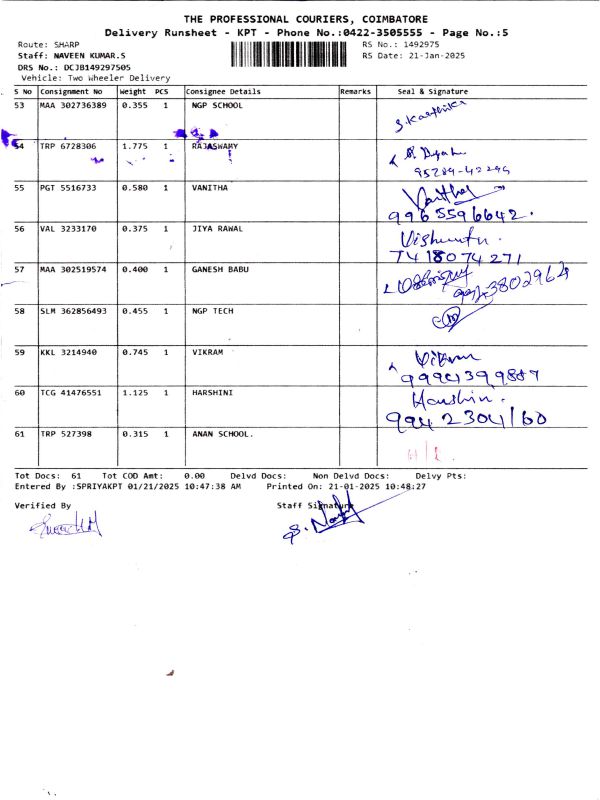 THE PROFESSIONAL COURIERS, COIMBATORE
Delivery Runsheet - KPT - Phone No.:0422-3505555 - Page No.:5
Route: SHARP RS No.: 1492975
Staff: NAVEEN KUMAR.S RS Date: 21-Jan-2025
DRS No.: DCJB149297505
Vehicle: Two Wheeler Delivery
S No Consignment No Weight PCS Consignee Details Remarks Seal & Signature
53 MAA 302736389 0.355 1 NGP SCHOOL S.Karthika
54 TRP 6728306 1.775 1 RAJASWAMY
95289-42295
55 PGT 5516733 0.580 1 VANITHA Vanitha
9965596642.
56 VAL 3233170 0.375 1 JIYA RAWAL
7418074271
57 MAA 302519574 0.400 1 GANESH BABU
58 SLM 362856493 0.455 1 NGP TECH
59 KKL 3214940 0.745 1 VIKRAM Vikram
9994399887
60 TCG 41476551 1.125 1 HARSHINI Harshini.
9942304160
61 TRP 527398 0.315 1 ANAN SCHOOL.
Tot Docs: 61 Tot COD Amt: 0.00 Delvd Docs: Non Delvd Docs: Delvy Pts:
Entered By :SPRIYAKPT 01/21/2025 10:47:38 AM Printed On: 21-01-2025 10:48:27
Verified By Staff Signature